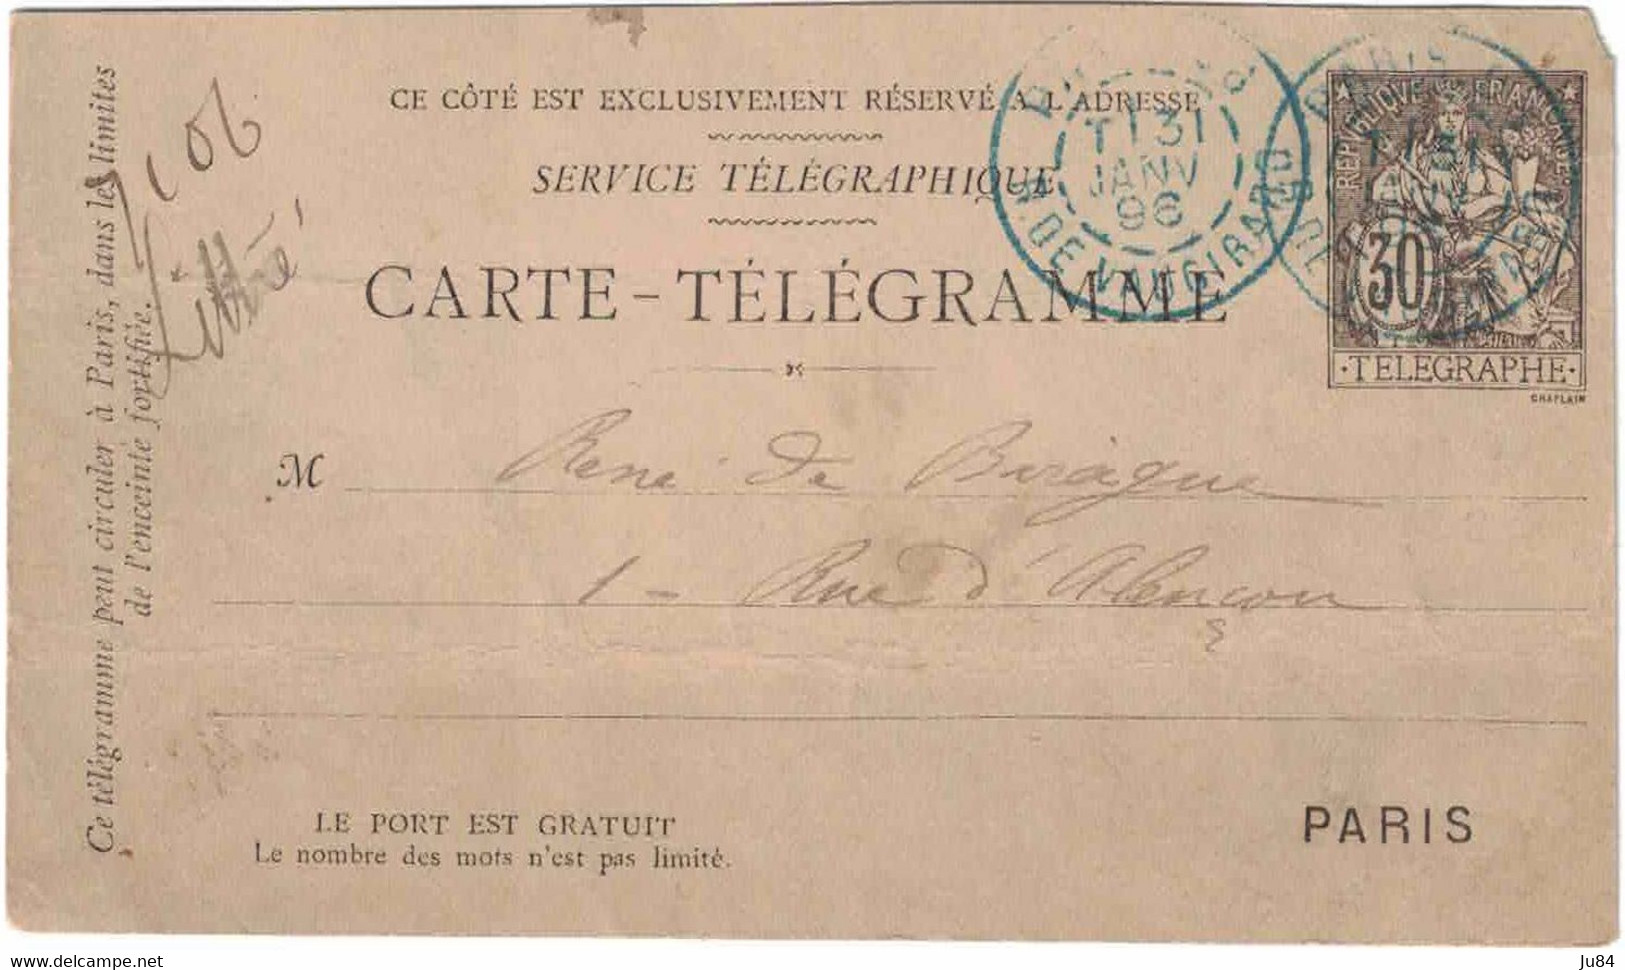 CE CÔTÉ EST EXCLUSIVEMENT RÉSERVÉ A L'ADRESSE
SERVICE TÉLÉGRAPHIQUE
CARTE-TÉLÉGRAMME
Ce télégramme peut circuler à Paris, dans les limites
de l'enceinte fortifiée.
106
Littré
T 31
JANV
96
R. DE VAUGIRARD
PARIS
REPUBLIQUE FRANCAISE
30
·TELEGRAPHE·
CHAPLAIN
M René de Birague
1 - Rue d'Alençon
LE PORT EST GRATUIT
Le nombre des mots n'est pas limité.
PARIS
www.delcampe.net
Ju84